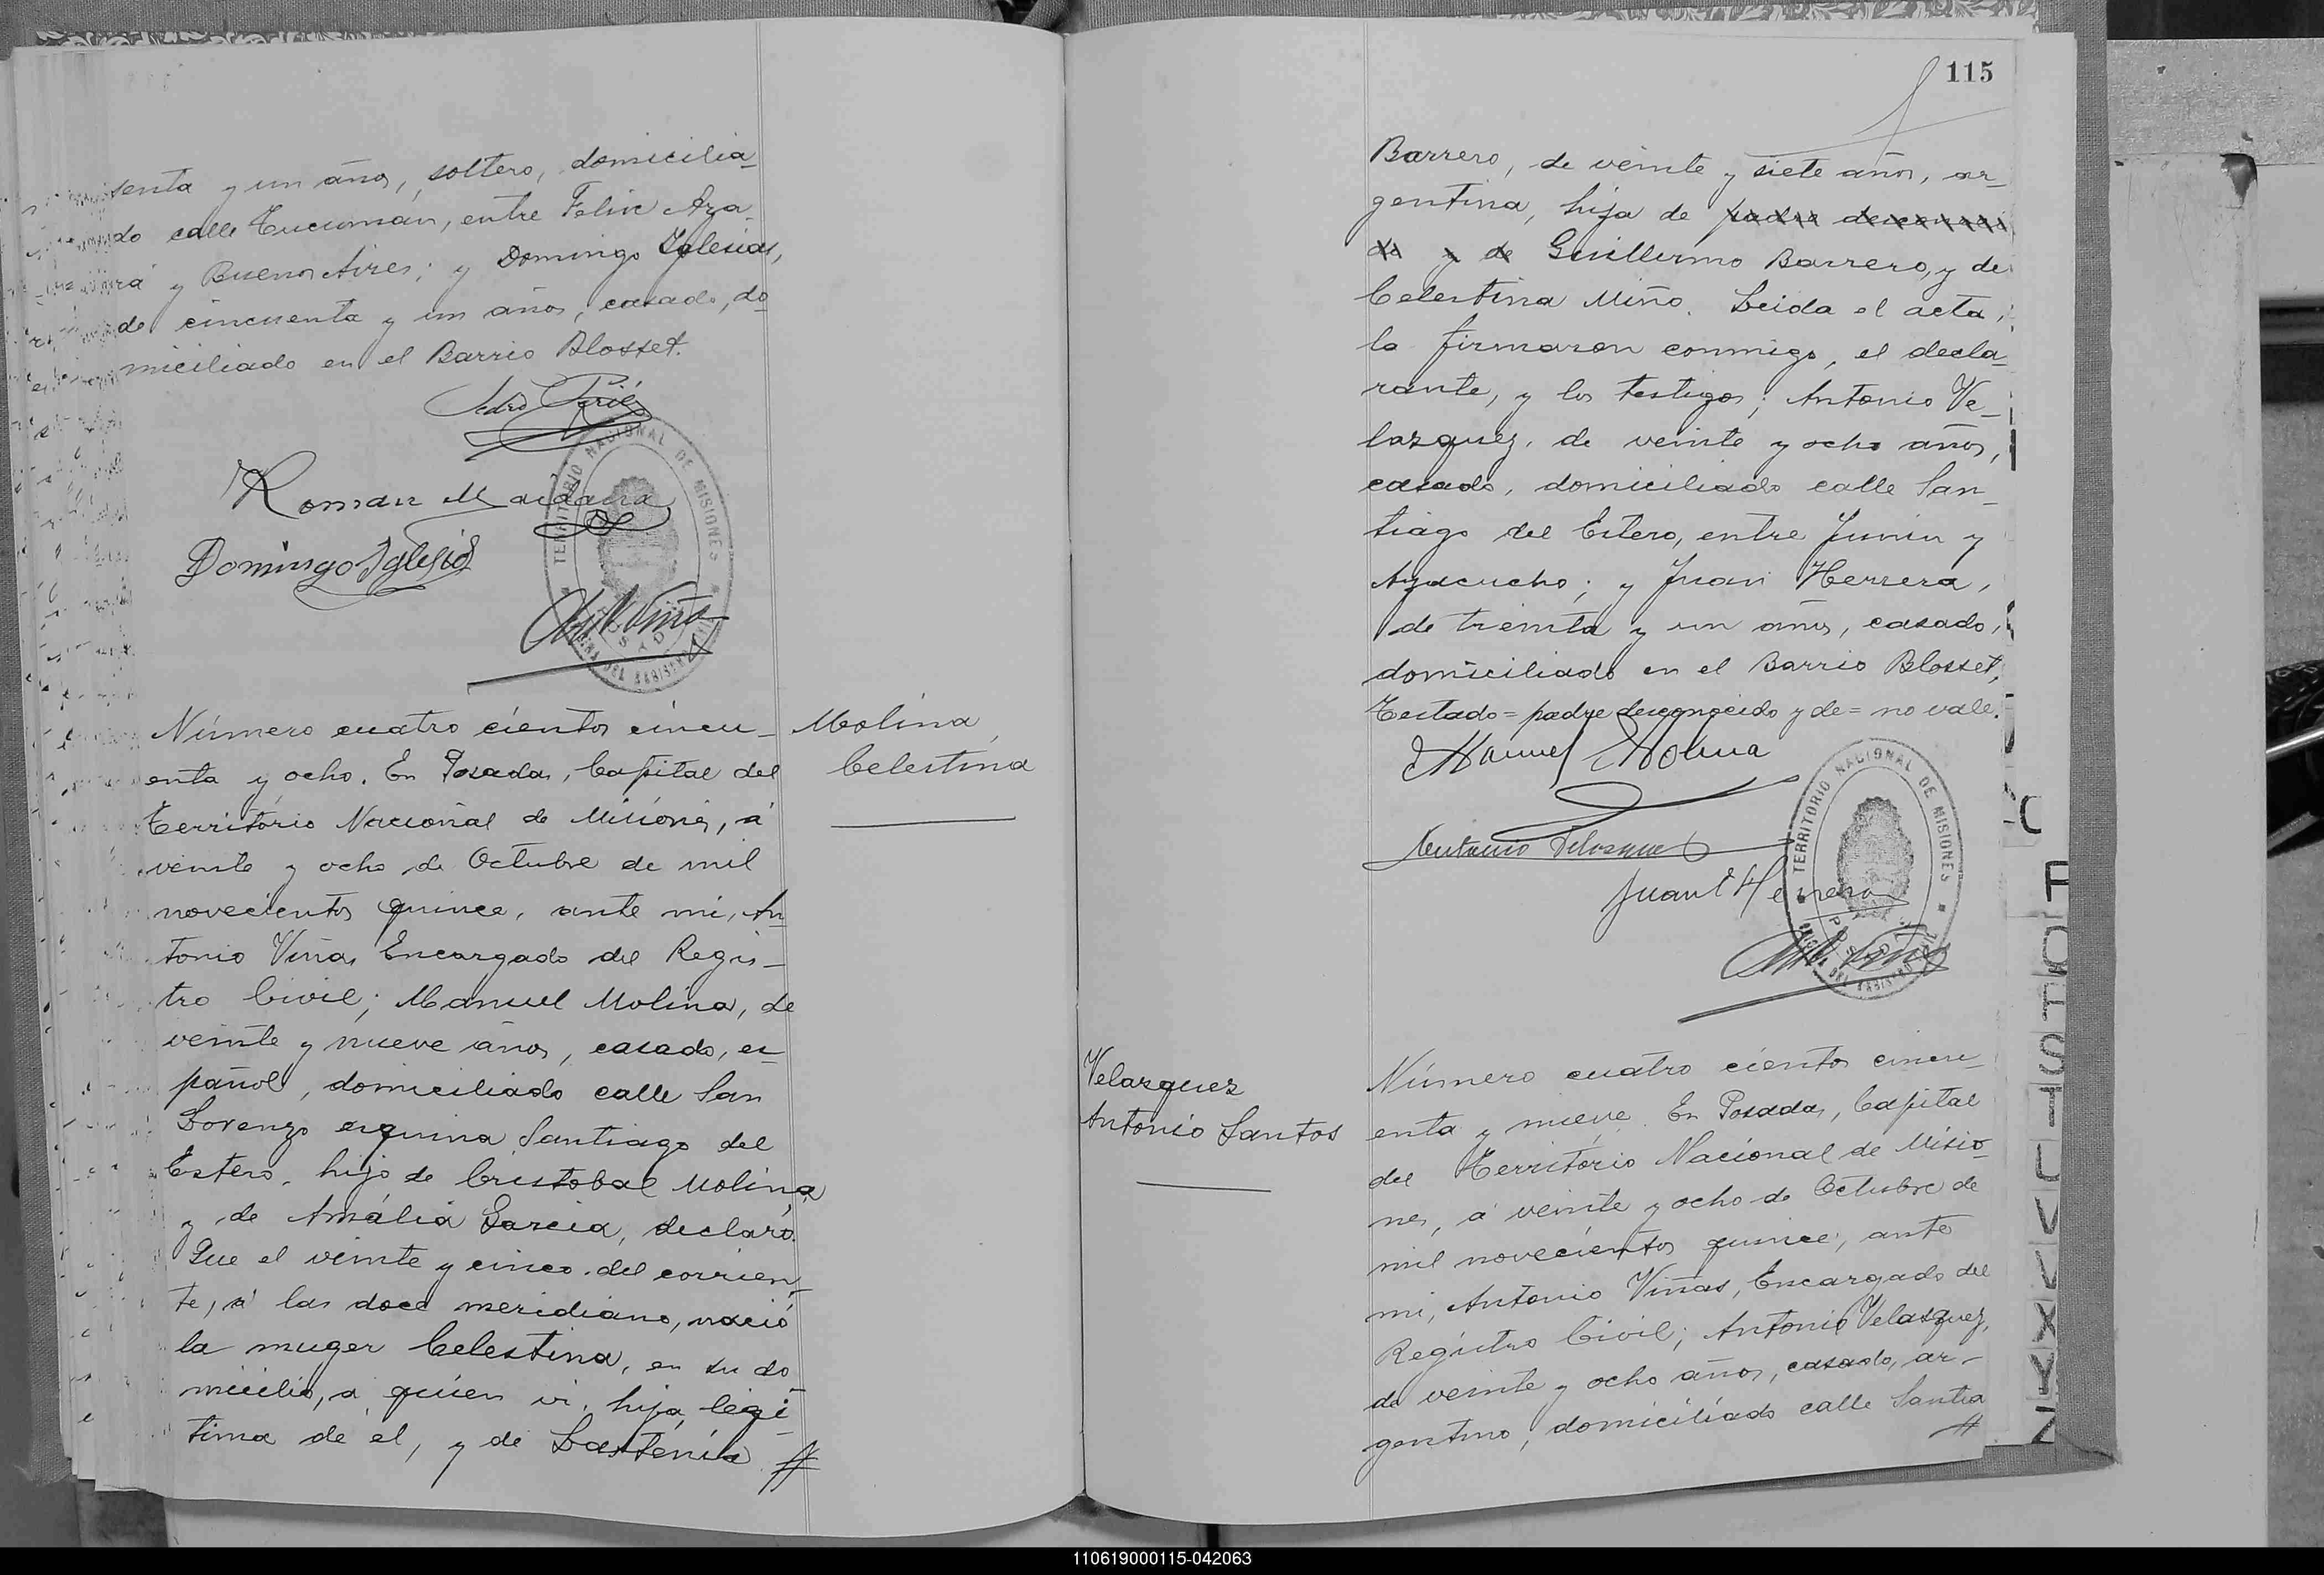 senta y un años, soltero, domicilia_
do calle Tucumán, entre Felix Aza_
ra y Buenos Aires; y Domingo Iglesias,
de cincuenta y un años, casado, do_
miciliado en el Barrio Blosset.
Roman Maidana
Domingo Iglesias
TERRITORIO NACIONAL DE MISIONES
Número cuatro cientos cincu_
enta y ocho. En Posadas, Capital del
Território Nacional de Misiones, á
veinte y ocho de Octubre de mil
novecientos quince, ante mi, An_
tonio Viñas, Encargado del Regis_
tro Civil; Manuel Molina, de
veinte y nueve años, casado, es_
pañol, domiciliado calle San
Lorenzo esquina Santiago del
Estero, hijo de Cristobal Molina
y de Amália Garcia, declaró:
Que el veinte y cinco del corrien_
te, á las doce meridiano, nació
la muger Celestina, en su do_
micilio, a quien vi, hija legi_
tima de él, y de Lasténia //
Molina,
Celestina
115
Barrero, de veinte y siete años, ar_
gentina, hija de padre desconoci
do y de Guillermo Barrero, y de
Celestina Miño. Leida el acta,
la firmaron conmigo, el decla_
rante, y los testigos; Antonio Ve_
lazquez, de veinte y ocho años,
casado, domiciliado calle San_
tiago del Estero, entre Junin y
Ayacucho; y Juan Herrera,
de treinta y un años, casado,
domiciliado en el Barrio Blosset,
Testado = padre desconocido y de = no vale.
Manuel Molina
Antonio Velazquez
Juan Herrera
TERRITORIO NACIONAL DE MISIONES
Velazquez
Antonio Santos
Número cuatro cientos cincu_
enta y nueve. En Posadas, Capital
del Território Nacional de Misio_
nes, á veinte y ocho de Octubre de
mil novecientos quince, ante
mi, Antonio Viñas, Encargado del
Registro Civil; Antonio Velazquez,
de veinte y ocho años, casado, ar_
gentino, domiciliado calle Santia
//
T
S
T
U
V
V
X
Y
Z
110619000115-042063